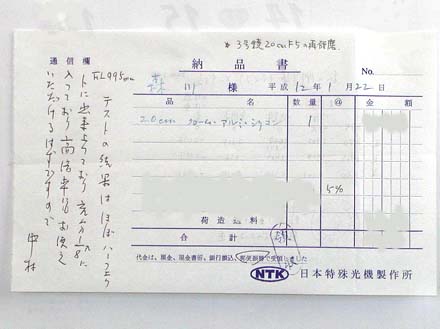 *3号鏡20cmF5の再研磨
納品書
No.
森川 様 平成 12年 1月 22日
品名 数量 @ 金額
20cm クローム・アルミ・シリコン 1
5%
荷造送料
合計
代金は、現金、現金書留、銀行振込、郵便振替で受領しました
NTK 日本特殊光機製作所
通信欄
FL995mm
テストの結果はほぼパーフェク
トに出来上っており充分1/8λに
入っており高倍率にもお使え
いただけるはずですので
中村